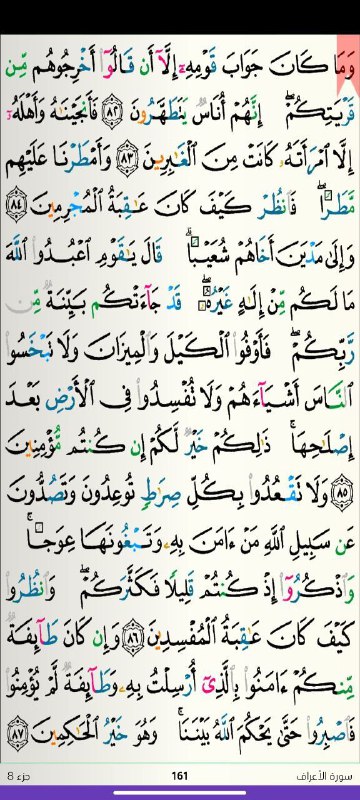 وَمَا كَانَ جَوَابَ قَوْمِهِۦٓ إِلَّآ أَن قَالُوٓا۟ أَخْرِجُوهُم مِّن
قَرْيَتِكُمْ ۖ إِنَّهُمْ أُنَاسٌ يَتَطَهَّرُونَ ٨٢ فَأَنجَيْنَـٰهُ وَأَهْلَهُۥٓ
إِلَّا ٱمْرَأَتَهُۥ كَانَتْ مِنَ ٱلْغَـٰبِرِينَ ٨٣ وَأَمْطَرْنَا عَلَيْهِم
مَّطَرًا ۖ فَٱنظُرْ كَيْفَ كَانَ عَـٰقِبَةُ ٱلْمُجْرِمِينَ ٨٤
وَإِلَىٰ مَدْيَنَ أَخَاهُمْ شُعَيْبًا ۗ قَالَ يَـٰقَوْمِ ٱعْبُدُوا۟ ٱللَّهَ
مَا لَكُم مِّنْ إِلَـٰهٍ غَيْرُهُۥ ۖ قَدْ جَآءَتْكُم بَيِّنَةٌ مِّن
رَّبِّكُمْ ۖ فَأَوْفُوا۟ ٱلْكَيْلَ وَٱلْمِيزَانَ وَلَا تَبْخَسُوا۟
ٱلنَّاسَ أَشْيَآءَهُمْ وَلَا تُفْسِدُوا۟ فِى ٱلْأَرْضِ بَعْدَ
إِصْلَـٰحِهَا ۚ ذَٰلِكُمْ خَيْرٌ لَّكُمْ إِن كُنتُم مُّؤْمِنِينَ
٨٥ وَلَا تَقْعُدُوا۟ بِكُلِّ صِرَٰطٍ تُوعِدُونَ وَتَصُدُّونَ
عَن سَبِيلِ ٱللَّهِ مَنْ ءَامَنَ بِهِۦ وَتَبْغُونَهَا عِوَجًا ۚ
وَٱذْكُرُوٓا۟ إِذْ كُنتُمْ قَلِيلًا فَكَثَّرَكُمْ ۖ وَٱنظُرُوا۟
كَيْفَ كَانَ عَـٰقِبَةُ ٱلْمُفْسِدِينَ ٨٦ وَإِن كَانَ طَآئِفَةٌ
مِّنكُمْ ءَامَنُوا۟ بِٱلَّذِىٓ أُرْسِلْتُ بِهِۦ وَطَآئِفَةٌ لَّمْ يُؤْمِنُوا۟
فَٱصْبِرُوا۟ حَتَّىٰ يَحْكُمَ ٱللَّهُ بَيْنَنَا ۚ وَهُوَ خَيْرُ ٱلْحَـٰكِمِينَ ٨٧
سورة الأعراف 161 جزء 8